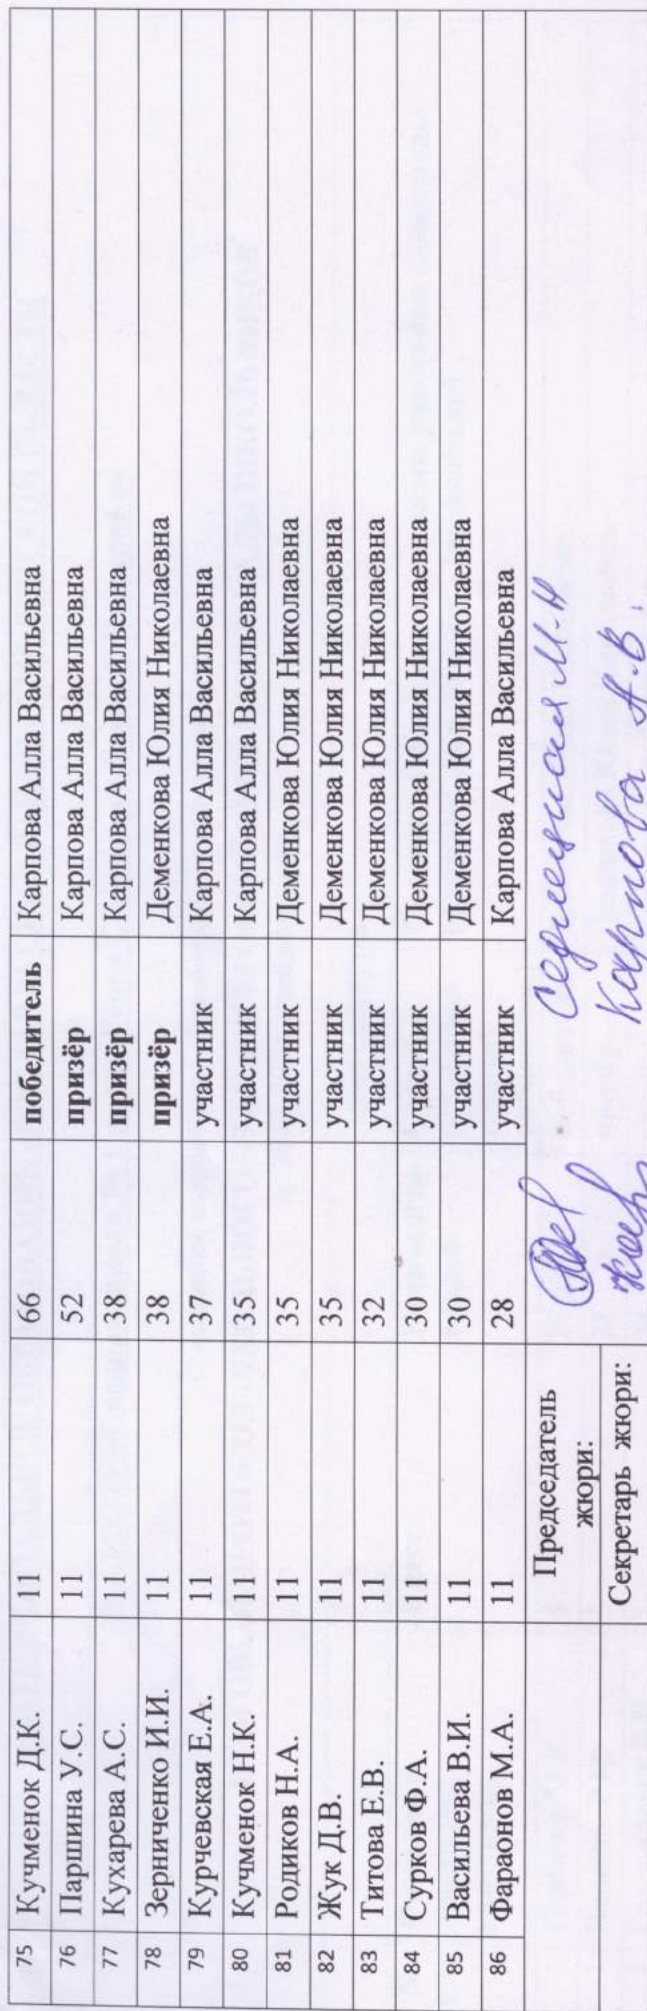 75 Кучменок Д.К. 11 66 победитель Карпова Алла Васильевна
76 Паршина У.С. 11 52 призёр Карпова Алла Васильевна
77 Кухарева А.С. 11 38 призёр Карпова Алла Васильевна
78 Зерниченко И.И. 11 38 призёр Деменкова Юлия Николаевна
79 Курчевская Е.А. 11 37 участник Карпова Алла Васильевна
80 Кучменок Н.К. 11 35 участник Карпова Алла Васильевна
81 Родиков Н.А. 11 35 участник Деменкова Юлия Николаевна
82 Жук Д.В. 11 35 участник Деменкова Юлия Николаевна
83 Титова Е.В. 11 32 участник Деменкова Юлия Николаевна
84 Сурков Ф.А. 11 30 участник Деменкова Юлия Николаевна
85 Васильева В.И. 11 30 участник Деменкова Юлия Николаевна
86 Фараонов М.А. 11 28 участник Карпова Алла Васильевна
Председатель
жюри: М.Н
Секретарь жюри: Карпова А.В.